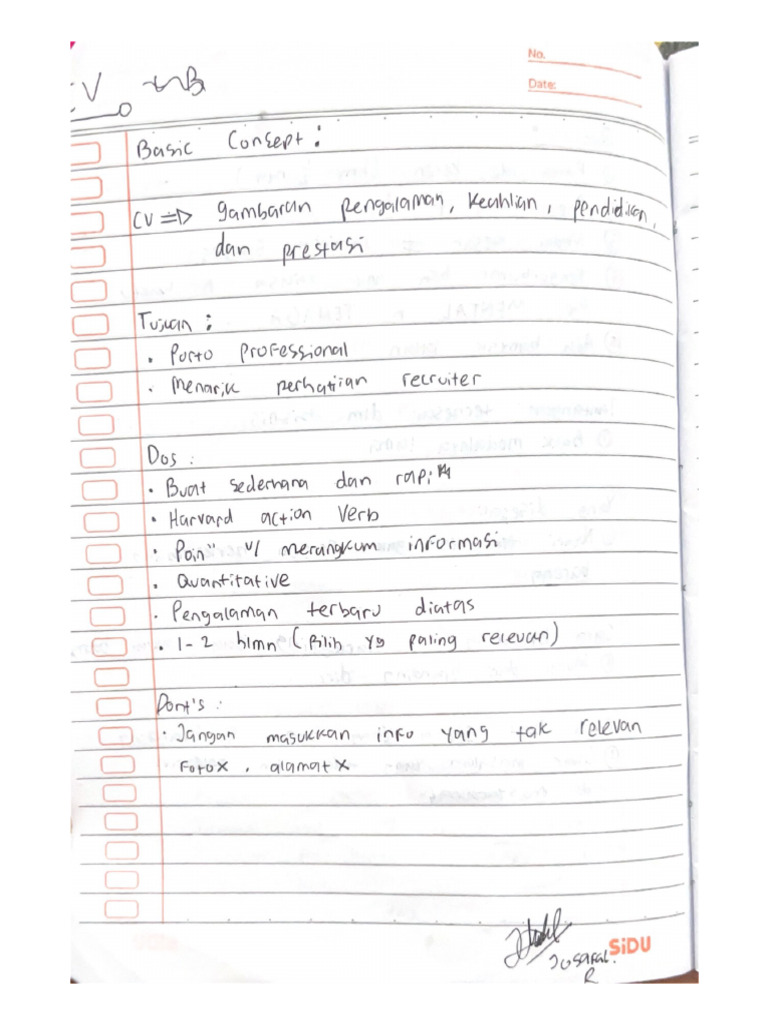 No.
Date:
CV
Basic Consept :
CV => gambaran pengalaman, keahlian, pendidikan,
dan prestasi
Tujuan :
• Porto professional
• Menarik perhatian recruiter
Dos :
• Buat sederhana dan rapi
• Harvard action verb
• Poin" u/ merangkum informasi
• Quantitative
• Pengalaman terbaru diatas
• 1-2 hlmn (Pilih yg paling relevan)
Dont's :
• Jangan masukkan info yang tak relevan
Foto X , alamat X
SiDU